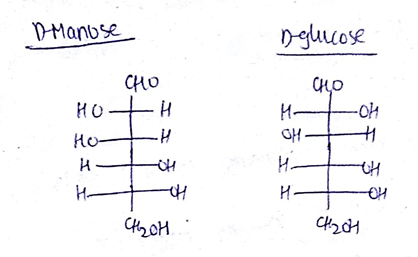 D-Manose D-glucose
CHO CHO
HO H H OH
HO H OH H
H OH H OH
H OH H OH
CH2OH CH2OH